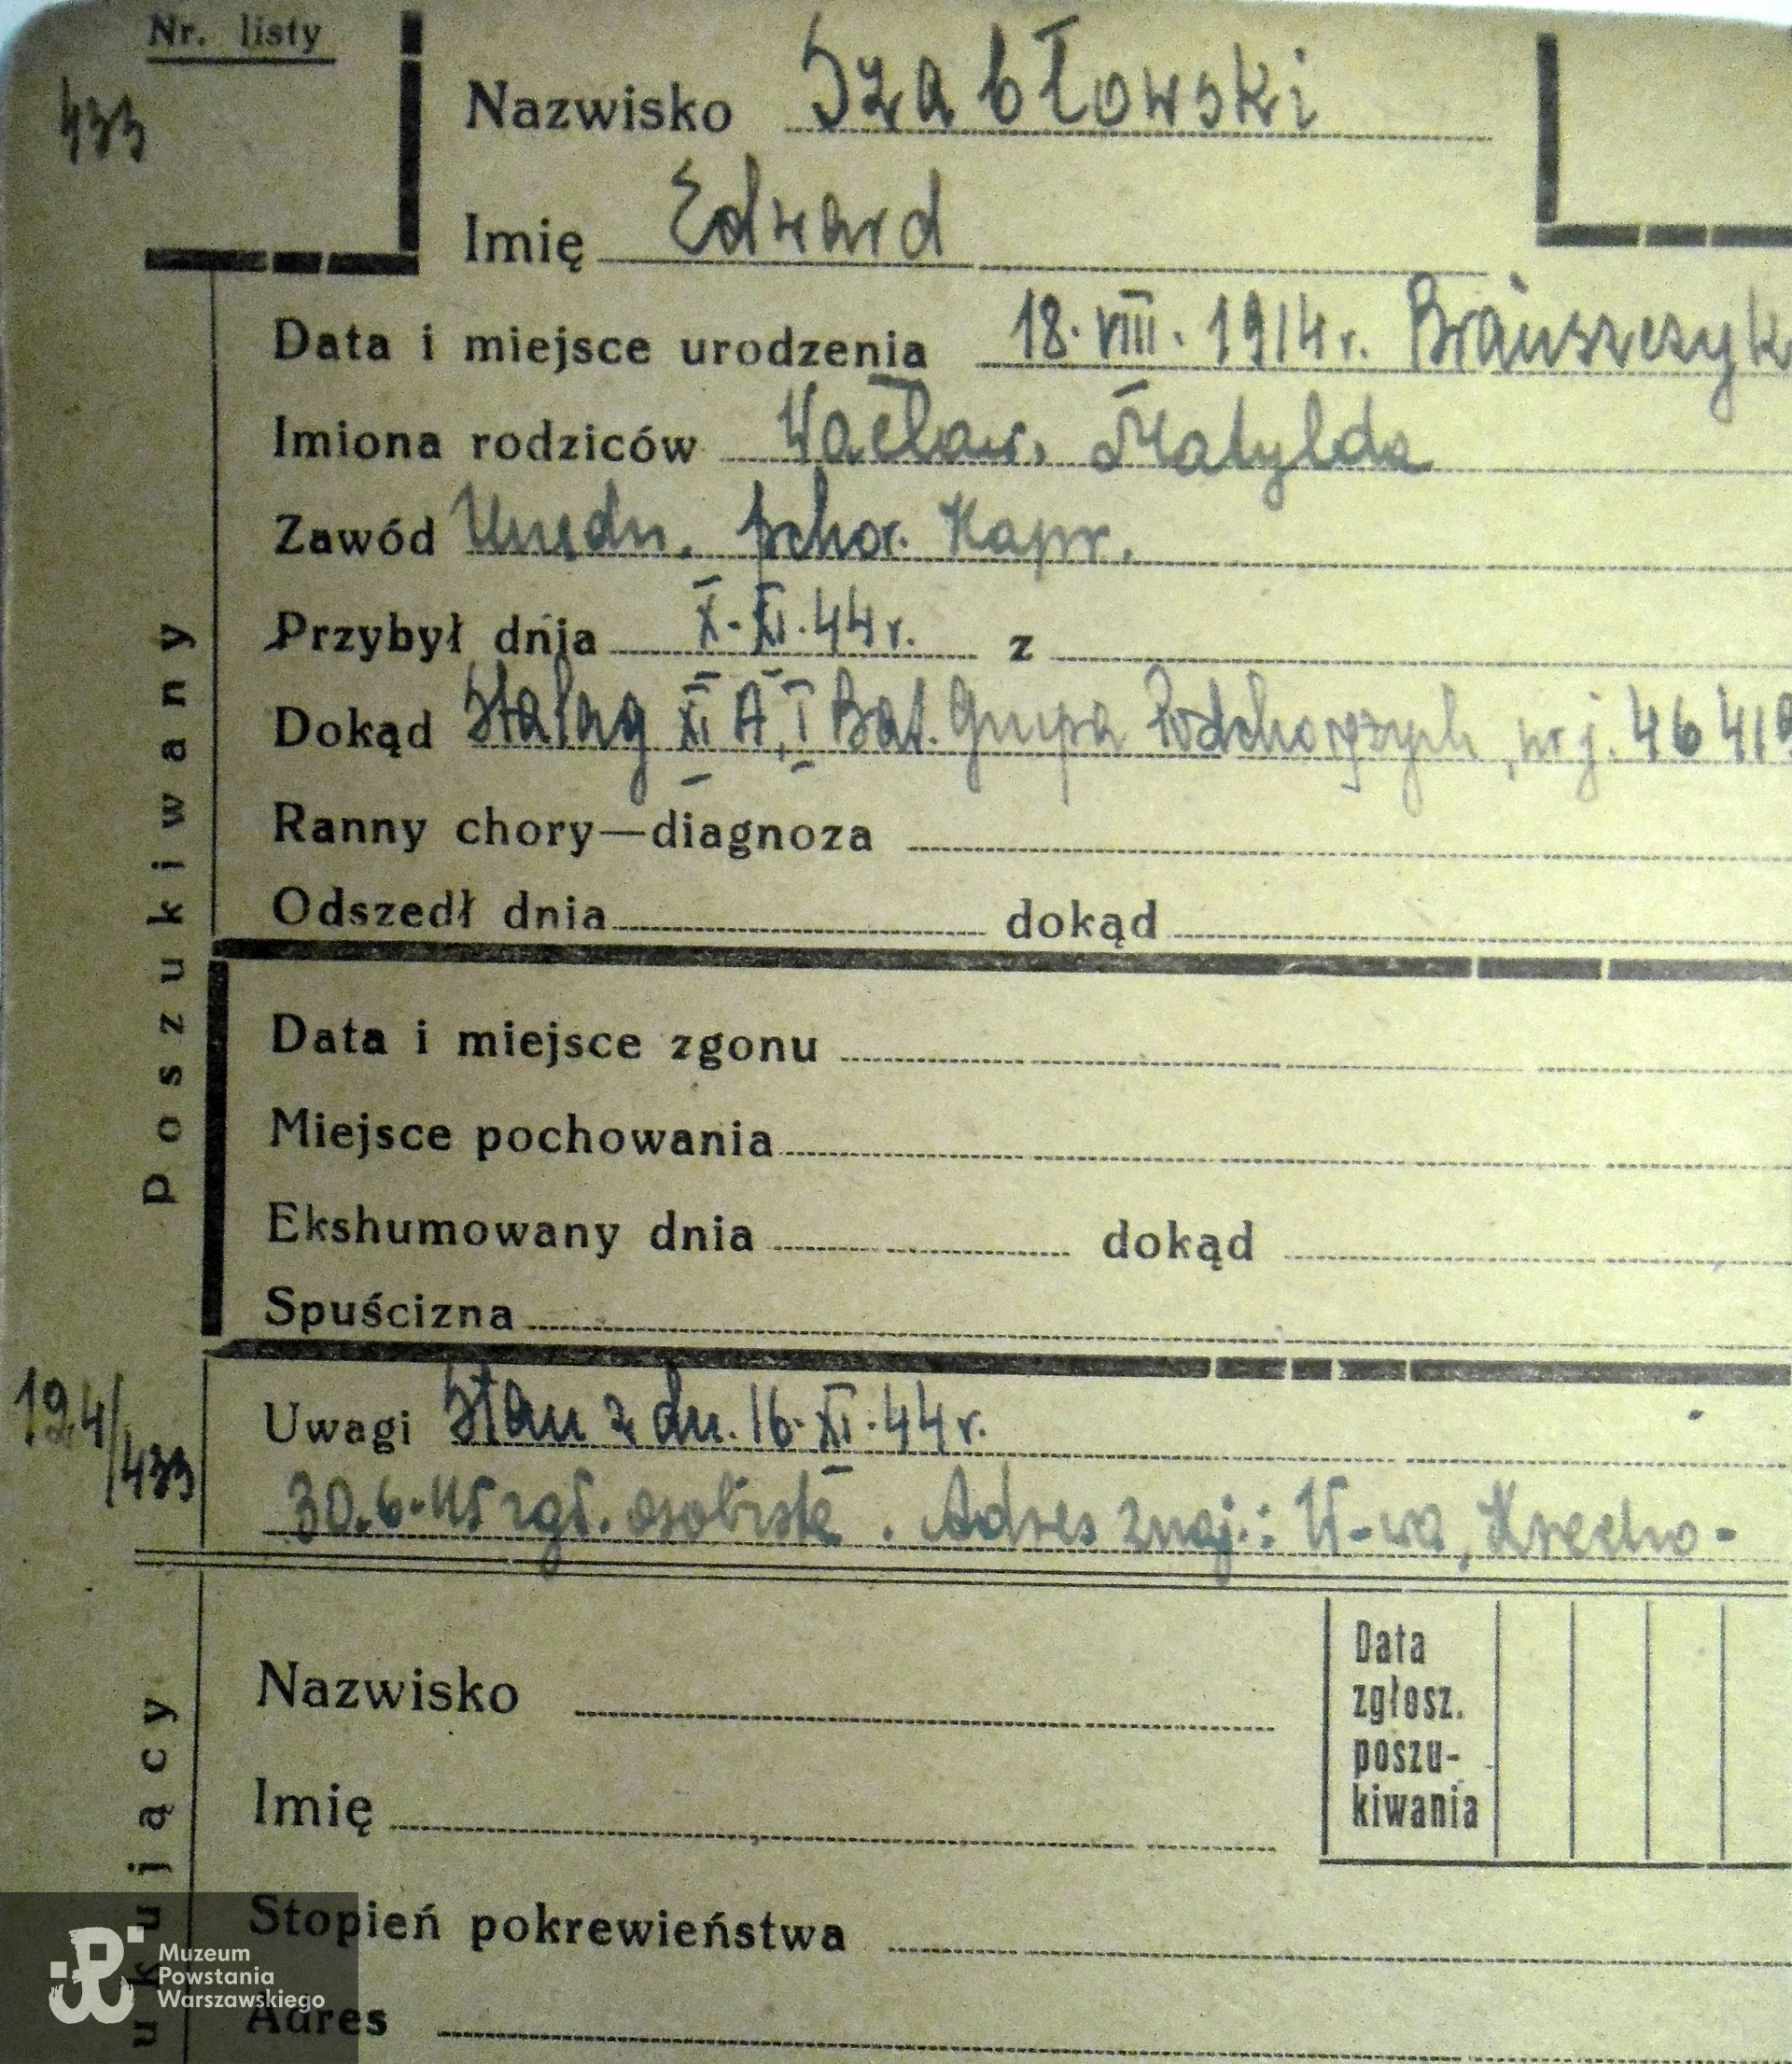 Nr. listy
433
Nazwisko Szabłowski
Imię Edward
Data i miejsce urodzenia 18.VIII.1914r. Brańszczyk
Imiona rodziców Wacław, Matylda
Zawód Urzędn. pchor. Kapr.
Przybył dnia X-XI.44r. z
Dokąd Stalag XI A, I Bat. Grupa Podchorążych, nr j. 46 41
Ranny chory—diagnoza
Odszedł dnia dokąd
Data i miejsce zgonu
Miejsce pochowania
Ekshumowany dnia dokąd
Spuścizna
Poszukiwany
124/433
Uwagi Stan z dn. 16.XI.44r.
30.6.45 zgł. osobiste. Adres znaj.: W-wa, Krecho-
Nazwisko
Imię
Data
zgłosz.
poszu-
kiwania
Stopień pokrewieństwa
Adres
ukujący
Muzeum
Powstania
Warszawskiego